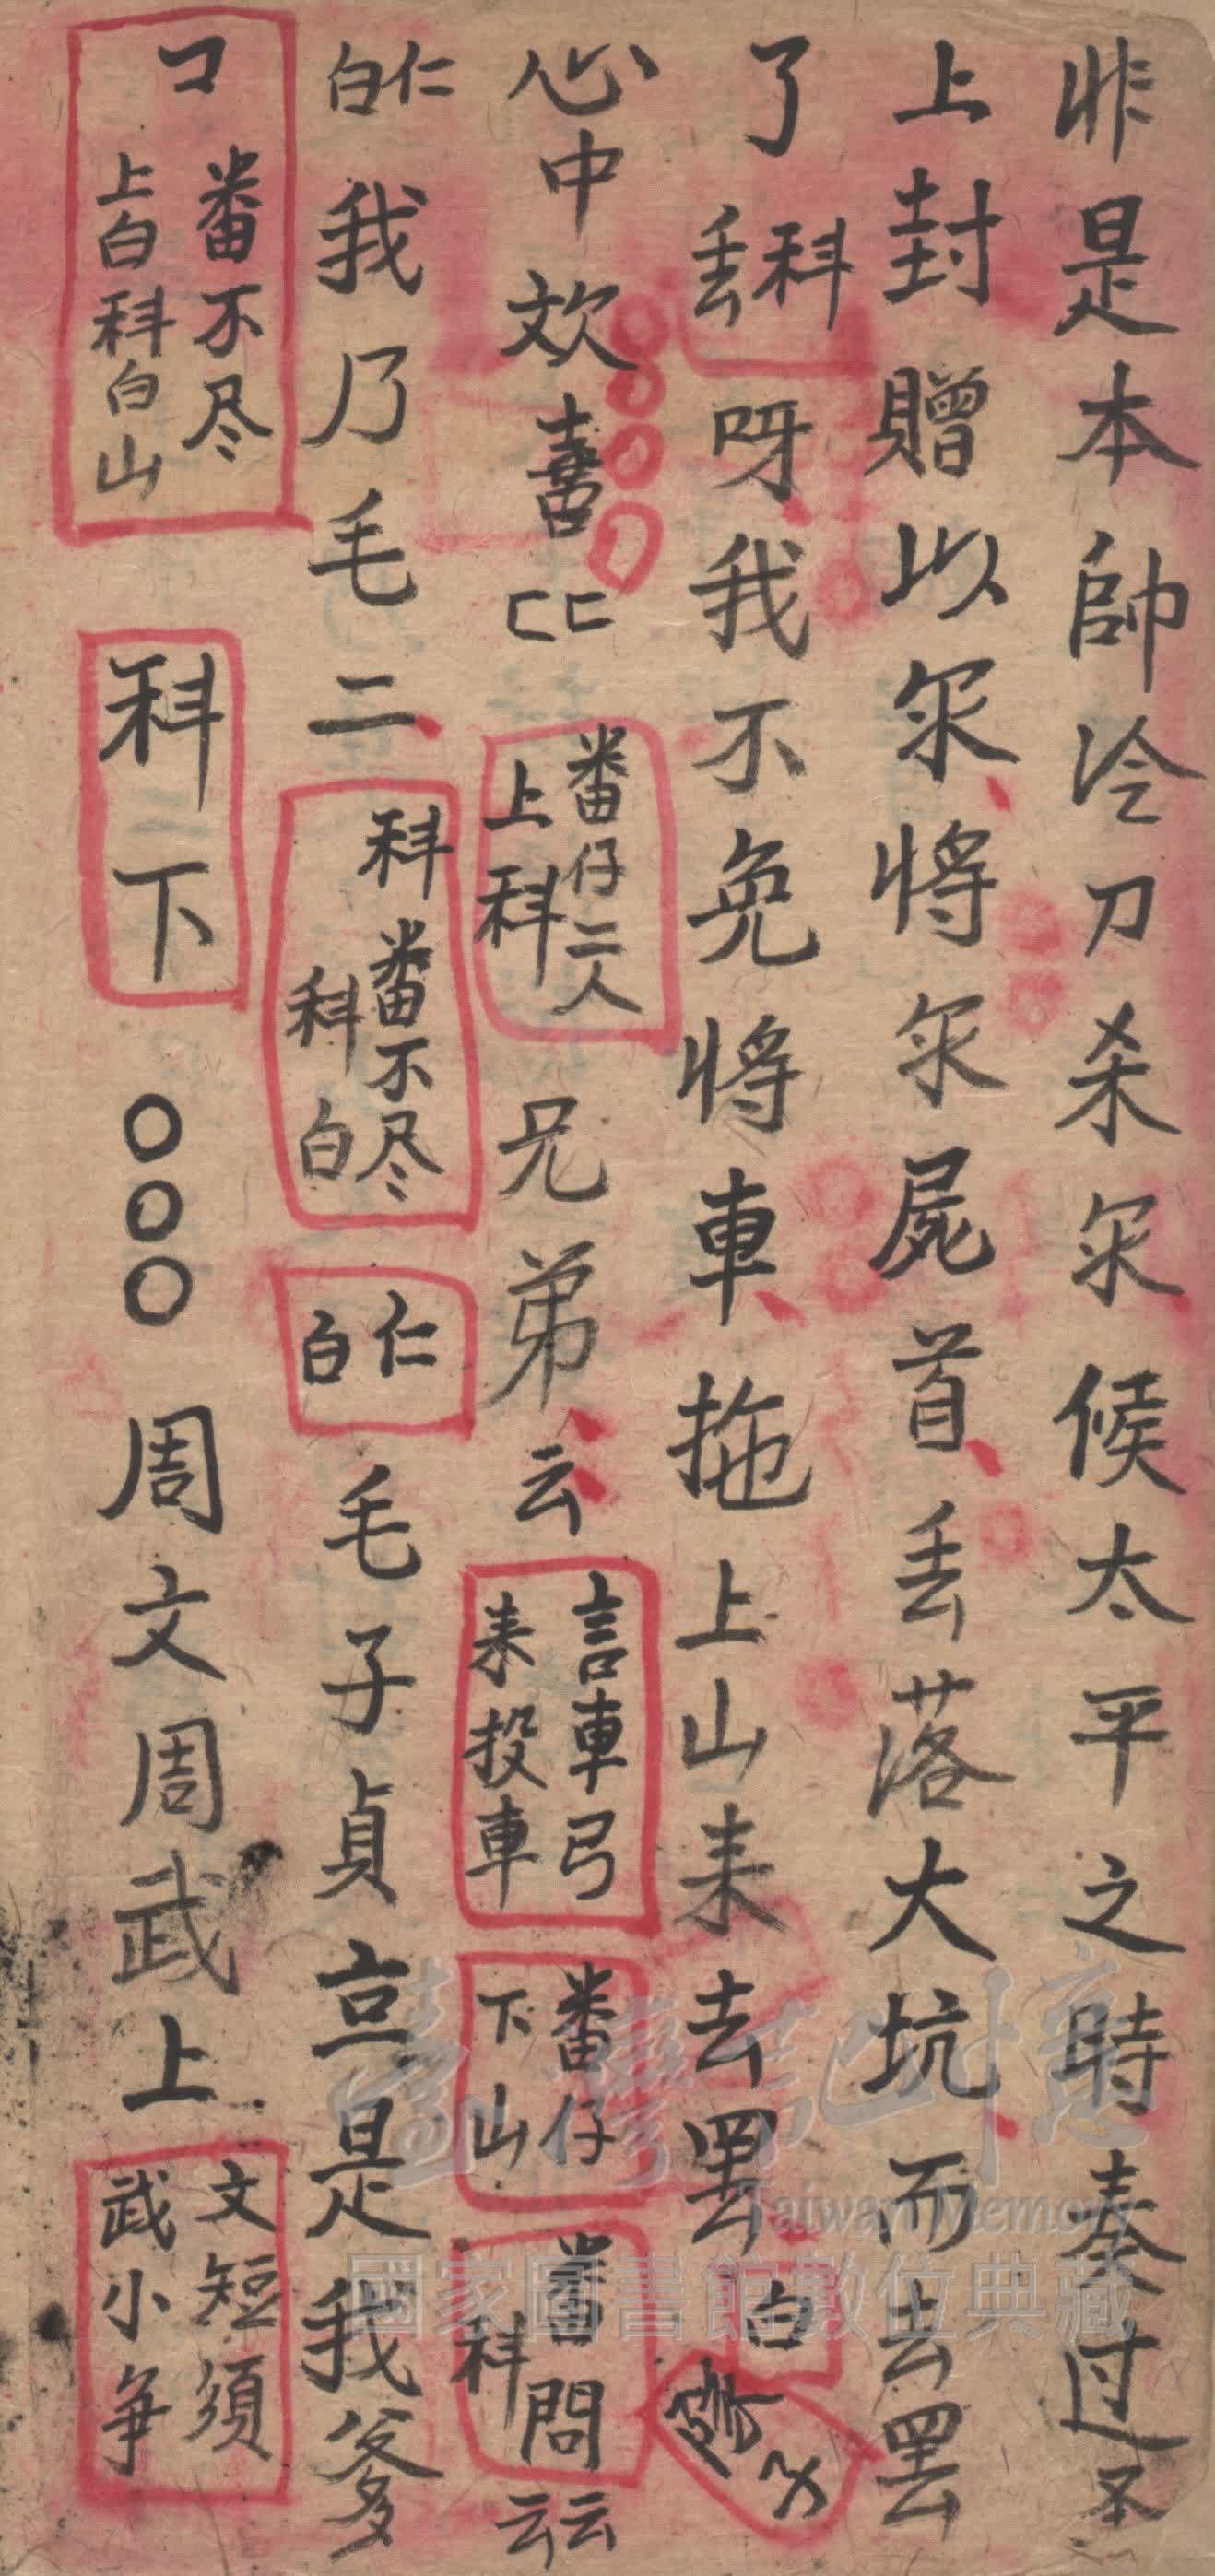 非是本帥冷刀杀尔候太平之時奏过圣
上封贈以尔将尔屍首丢落大坑而去罢
了丢科呀我不免将車拖上山来去罢白
心中欢喜匸匸番仔二人上科兄弟云言車弓来投車番仔下山番問科云云
仁白我乃毛二科番不尽科白仁白毛子貞言是我爹
コ番不尽上白科白山科下○○○周文周武上文短須武小争
臺灣記憶
Taiwan Memory
國家圖書館數位典藏